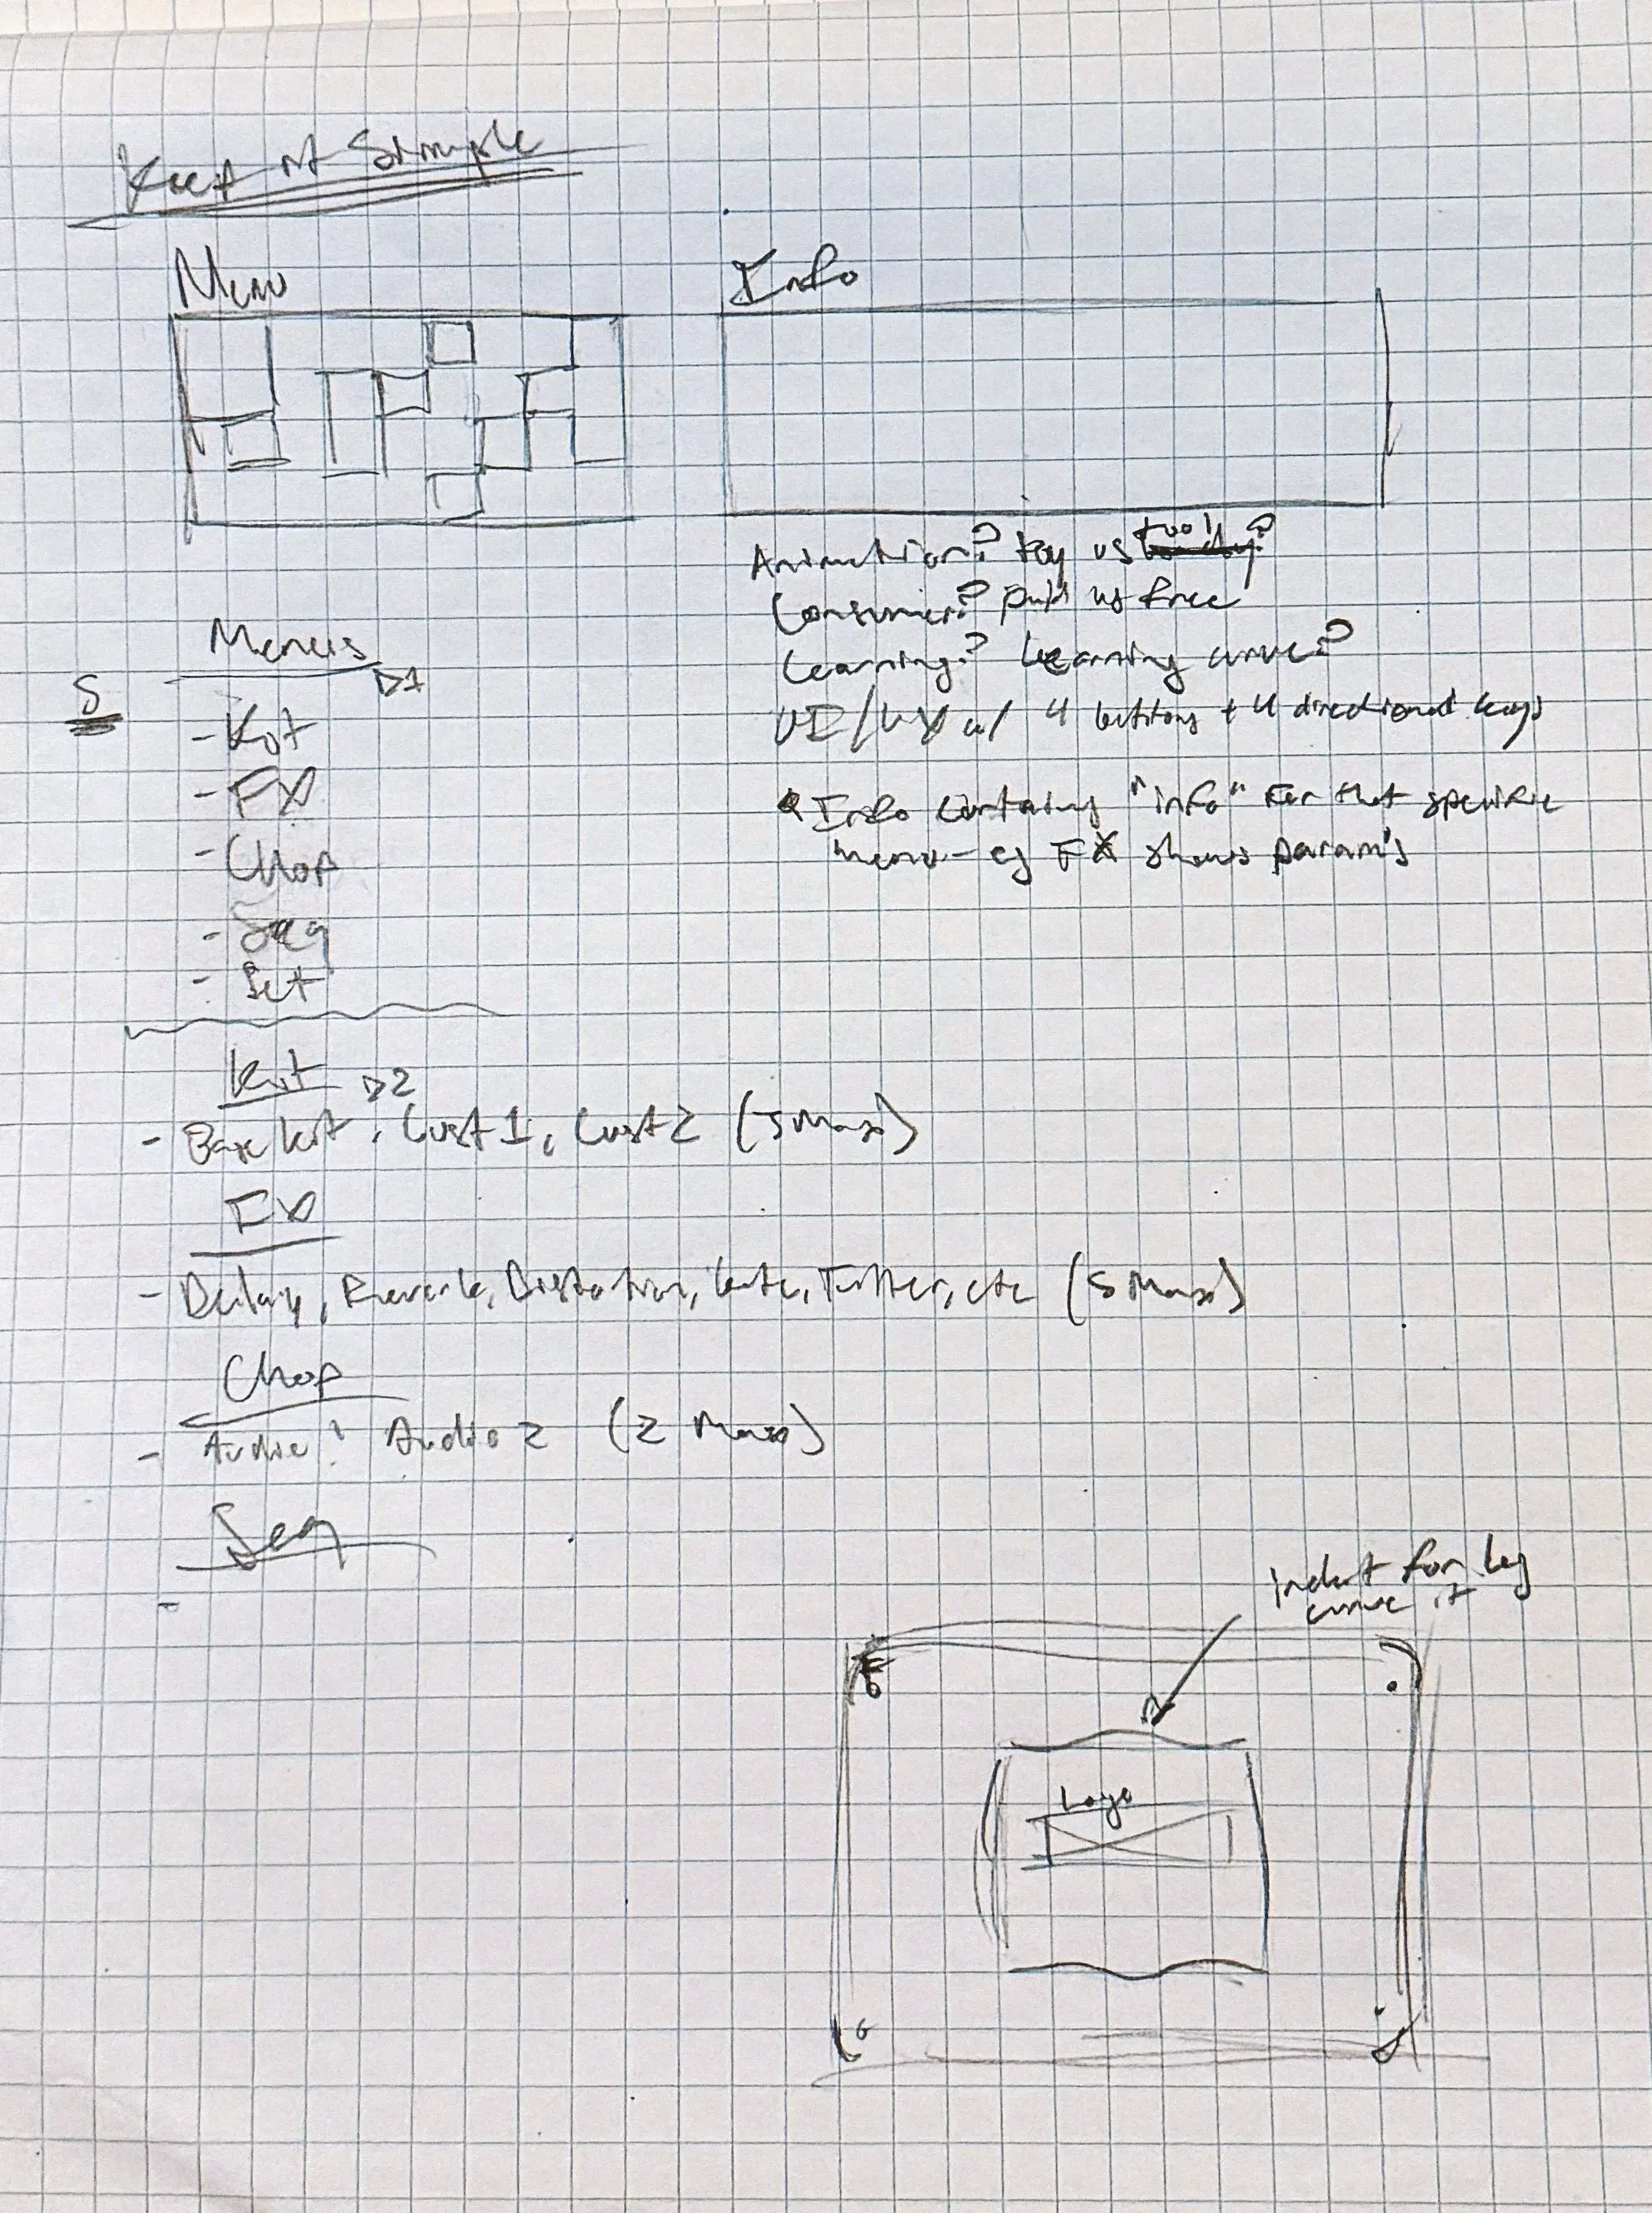 Keep it Simple
Menu
Info
Animation? toy vs tool?
Consumer? paid vs free
Learning? Learning curve?
UI/UX w/ 4 buttons + 4 directional keys
Info containing "info" for that specific
menu - eg FX shows param's
Menus
D1
5
- Kit
- FX
- Chop
- Seq
- Set
Kit
D2
- Base kit, Cust 1, Cust 2 (5 Max)
FX
- Delay, Reverb, Distortion, Gate, Filter, etc (5 Max)
Chop
- Audio 1 Audio 2 (2 Max)
Seq
-
indent for leg
curve it
Logo